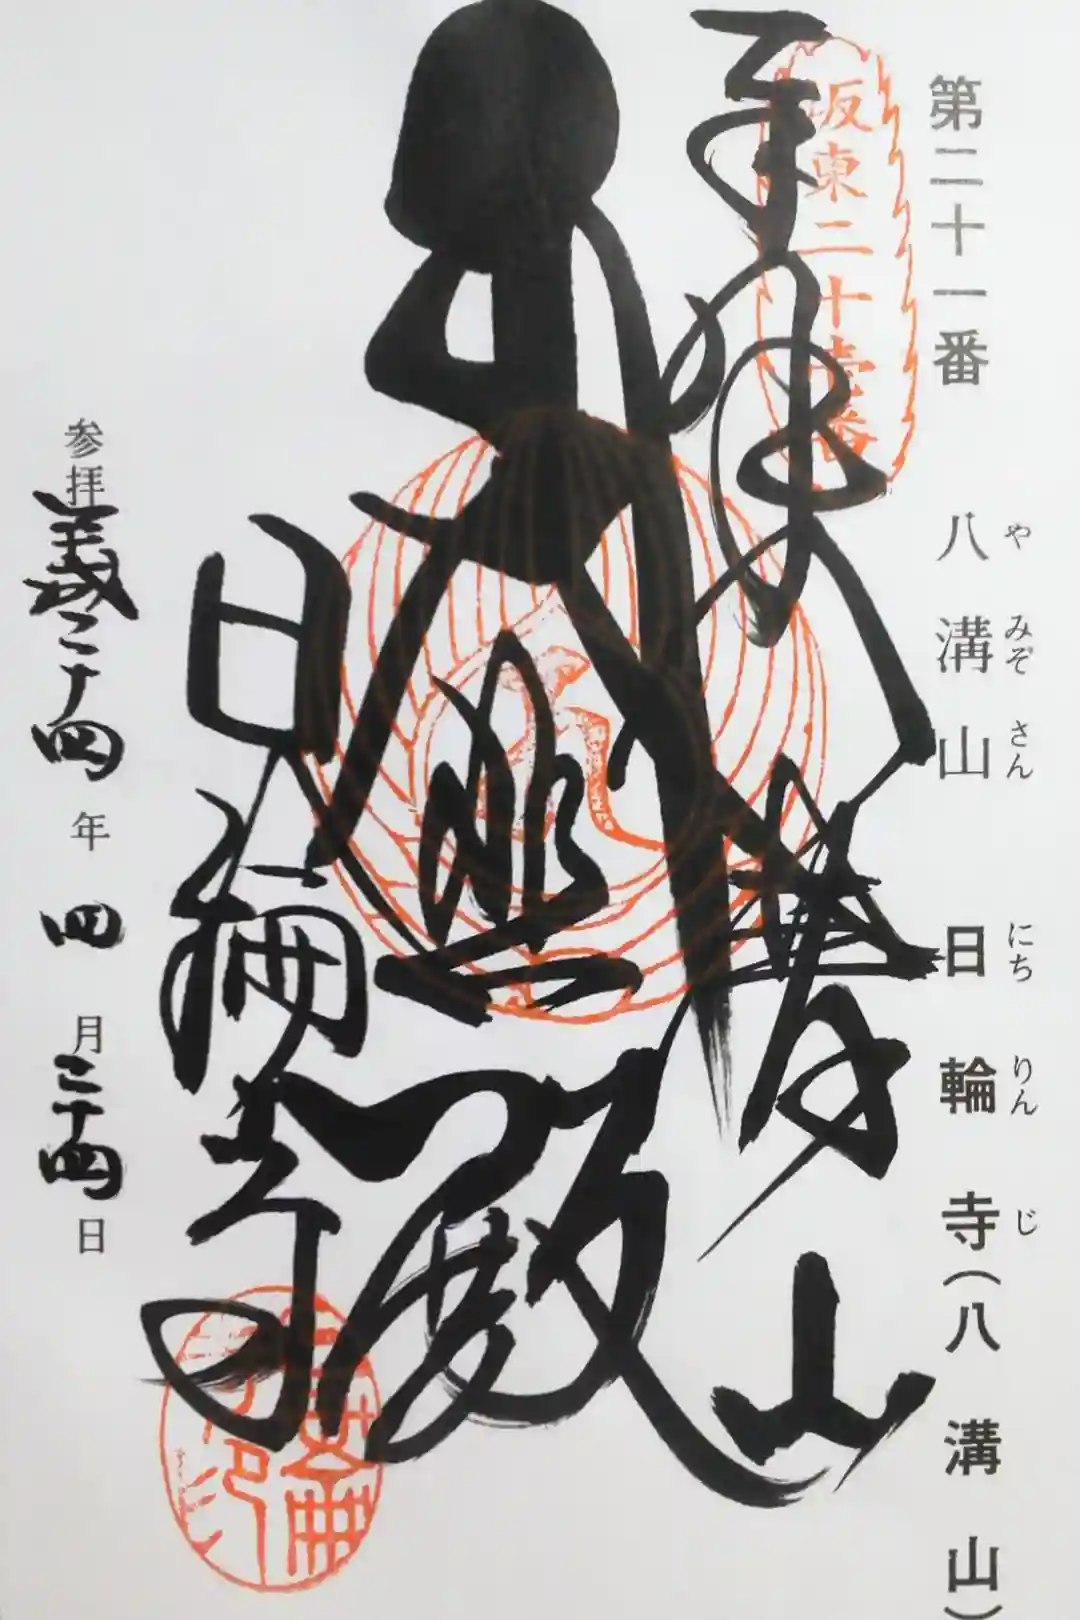 第二十一番 八溝山 日輪寺(八溝山)
やみぞさん にちりんじ
坂東二十壱番
奉拝 八溝山
大悲殿
日輪寺
参拝 平成二十四年 四月二十四日